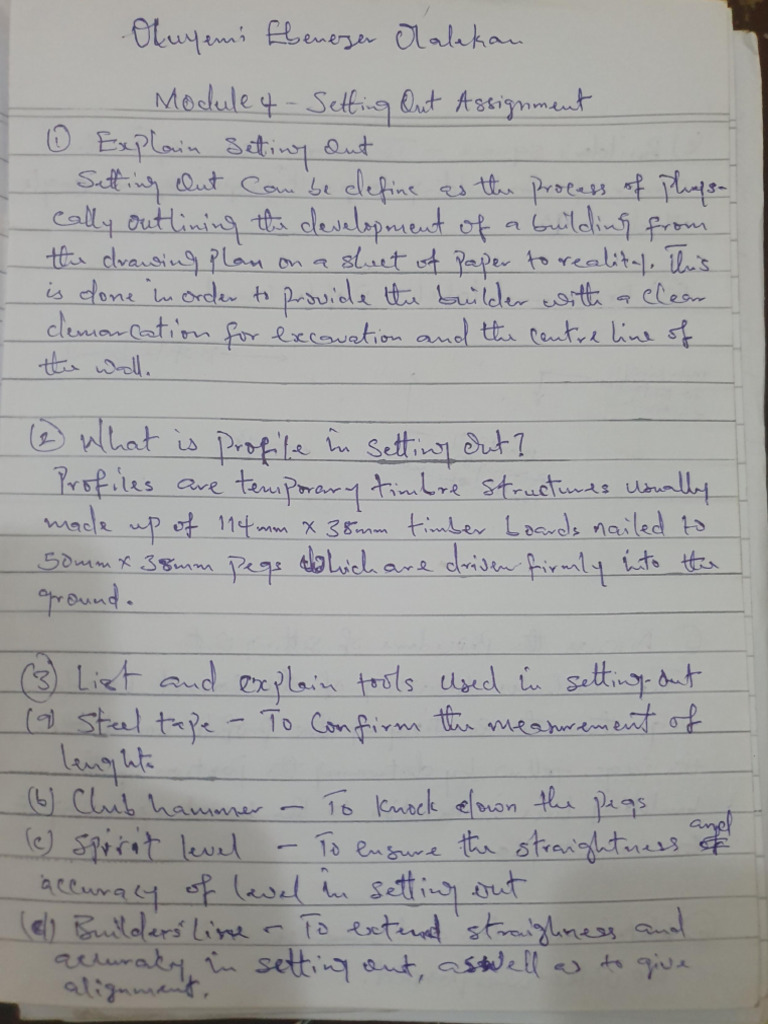 Okuyemi Ebenezer Olalekan
Module 4 - Setting Out Assignment
① Explain Seting Out
Setting Out Can be define as the process of physi-
cally outlining the development of a building from
the drawing plan on a sheet of paper to reality. This
is done in order to provide the builder with a clear
demarcation for excavation and the centre line of
the wall.
② What is profile in setting out?
Profiles are temporary timbre structures usually
made up of 114mm x 38mm timber boards nailed to
50mm x 38mm pegs which are driven firmly into the
ground.
③ List and explain tools used in setting-out
(a) Steel tape - To Confirm the measurement of
lenght.
(b) Club hammer - To knock down the pegs
(c) Spirit level - To ensure the straightness and
accuracy of level in setting out
(d) Builders' line - To extend straighness and
accuraty in setting out, aswell as to give
alignment.